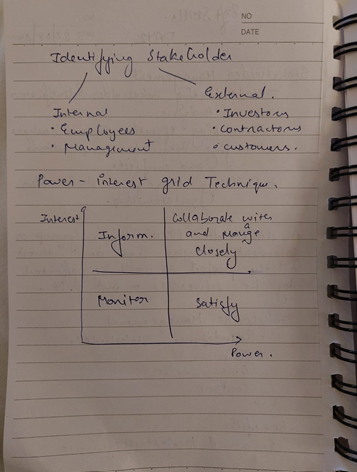 NO
DATE
Identifying Stakeholder
Internal
• Employees
• Management
External.
• Investors
• Contractors
• customers.
Power - interest grid Technique.
Interest
Inform.
Collaborate with
and mange
closely
Monitor
Satisfy
Power.